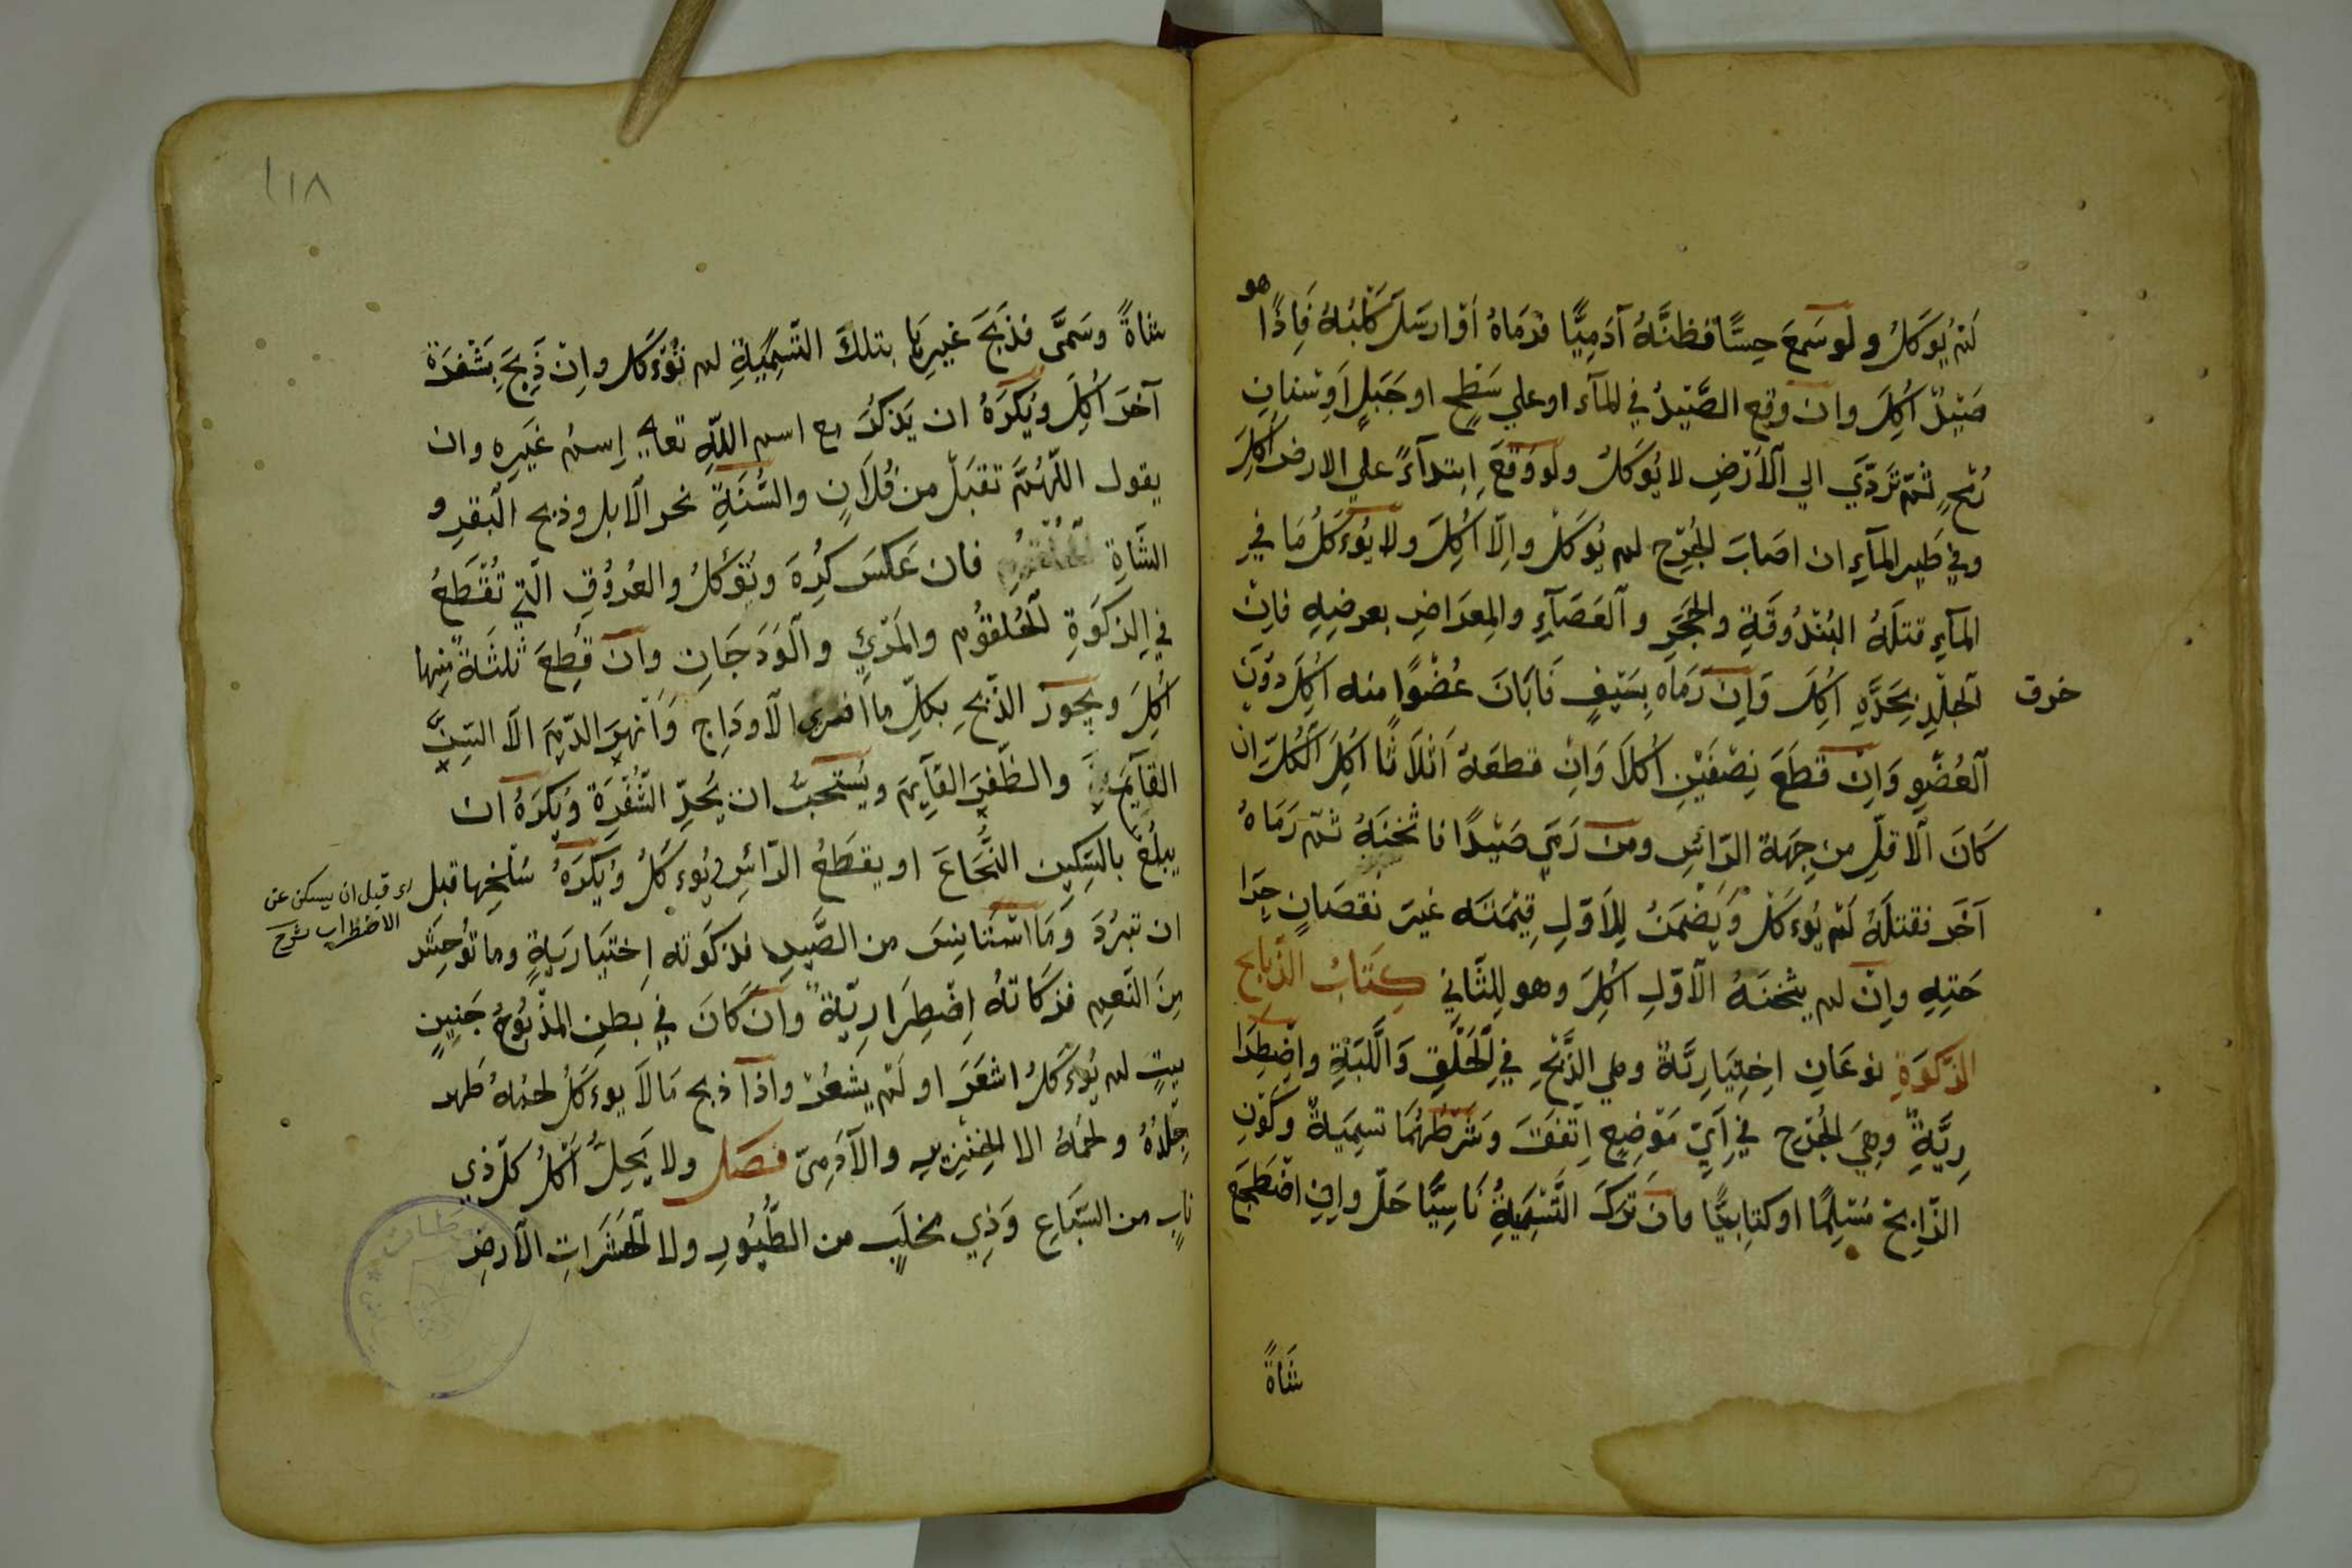 لَمْ يُوكَلُ ولَو سَمِعَ حِسًّا فَظنَّهُ آدَمِيًّا فرَمَاهُ اَوْ ارسَلَ كَلْبَهُ فَاِذَا هو
صَيْدٌ اُكِلَ وان وقع الصَّيْدُ في المآء او علي سَطْحٍ او جَبَلٍ اَوسِنانِ
رُمْحٍ ثُمَّ تَرَدَّيَ الي الْاَرْضِ لا يُوكَلُ ولَو وَقَعَ اِبتدآءً علي الارض اُكِلَ
وفي طَيرِ المآءِ ان اصَابَ الجُرْح لم يُوكَلْ واِلّا اُكِلَ ولَا يُوءكَلُ مَا في
المآءِ قتلَهُ البُنْدُوقَةِ والحَجَرِ والْعَصَآءِ والمِعرَاضِ بعرضِهِ فاِنْ
خرق
الجِلْدِ بِحَدِّهِ اُكِلَ وَاِنْ رَمَاه بِسَيْفٍ فَابَانَ عُضْوًا منه اُكِلَ دوُنَ
الْعُضْوِ وَاِنْ قَطَعَ نِصْفَيْنِ اُكلاَ وَاِنْ قطعَهُ اَثلاَثًا اُكِلَ الْكُلّ ان
كَانَ الْاقلِّ من جِهَة الرَّأسِ ومن رَمَي صَيْدًا فاثخَنَهُ ثمّ رَمَاهُ
آخَر فقتلَهُ لَمْ يُوءكَلْ وَيَضْمَنُ لِلْاَوّلِ قِيْمَتَه غيَر نقصَانِ جِرَا
حَتِهِ واِنْ لم يثخنَهُ الْاوّلِ اُكِلَ وهو لِلثّانِي كِتَابُ الذّبايح
الذّكوَةِ نوعَانِ اِختِيَارِيَّةٌ وهي الذَّبْحِ في الْحَلْقِ وَاللّبَّةِ واضْطِرَا
رِيَّةٌ وهِيَ الجُرْح في اَيِّ مَوْضِعٍ اِتّفَقَتَ وَشَرْطُهُمَا تسمِيَةٌ وكَوْنِ
الذّابِحْ مُسْلِمًا او كتابيًّا فان تَرَكَ التَّسْمِيَةُ نَاسِيًّا حَلّ واِن اضْطَجَع
شَاةً
١١٨
شاةً وسَمَّى فذَبَحَ غيرِهَا بتلكَ التَّسمِيَةِ لم تُوءكَل واِنْ ذَبَحَ بِشَفرَة
آخَرَ اُكِلَ ويُكرَهُ ان يَذكُرَ مع اسم اللهِ تعالي اِسمُ غَيرِه وان
يقول اللّهُمَّ تقبَلْ من فُلاَنٍ والسُّنَةِ نحر الْابل وذبح الْبَقرِ و
الشّاةِ فان عَكسَ كُرِهَ وتُؤكلُ والعُرُوُقِ الّتي تُقْطَعُ
في الذكَوَةِ الْحُلقُوُم والمَرْئِ والْوَدَجَانِ وان قُطِعَ ثلثَةٌ مِنها
اُكِلَ ويجوز الذّبحِ بكلّ ما افرى الْاودَاج وَاَنْهَرَ الدّمَ الّا السّنَّ
القآيمَ والظّفرِ القآيِمَ ويُستَحبُّ ان يُحَدِّ الشّفْرَة ويُكرَهُ ان
يبلُغَ بالسّكين النُّخَاعَ او يقطَعُ الرّأسِ ويُوء كَلُ ويُكرَهُ سَلْخِها قبل
اى قبل ان يسكن عن
الاضطراب شرح
ان تبرُدَ وَمَا اسْتَأنِسَ من الصَّيدِ فذكَوته اِختيَارَيةٍ وما توُحِشَ
مِنَ النّعمِ فذكاتهُ اِضْطِرَارِيّةٌ وان كَانَ في بطنِ المذْبُوُحُ جَنِينٍ
ميتٍ لم يُوءكَلُ اشعَرَ او لَمْ يشعُرْ واذا ذبح مَا لَا يوءكَلُ لحمُهُ طهر
جِلدُهُ ولحمُهُ الا الخِنزِيرِ والآدَمِىّ فصَل ولا يَحِلُّ اَكْلُ كلّ ذِي
نابٍ من السّبَاعِ وَذِي مخلَبٍ من الطُّيُورِ ولا الْحَشَرَاتِ الْارضِ